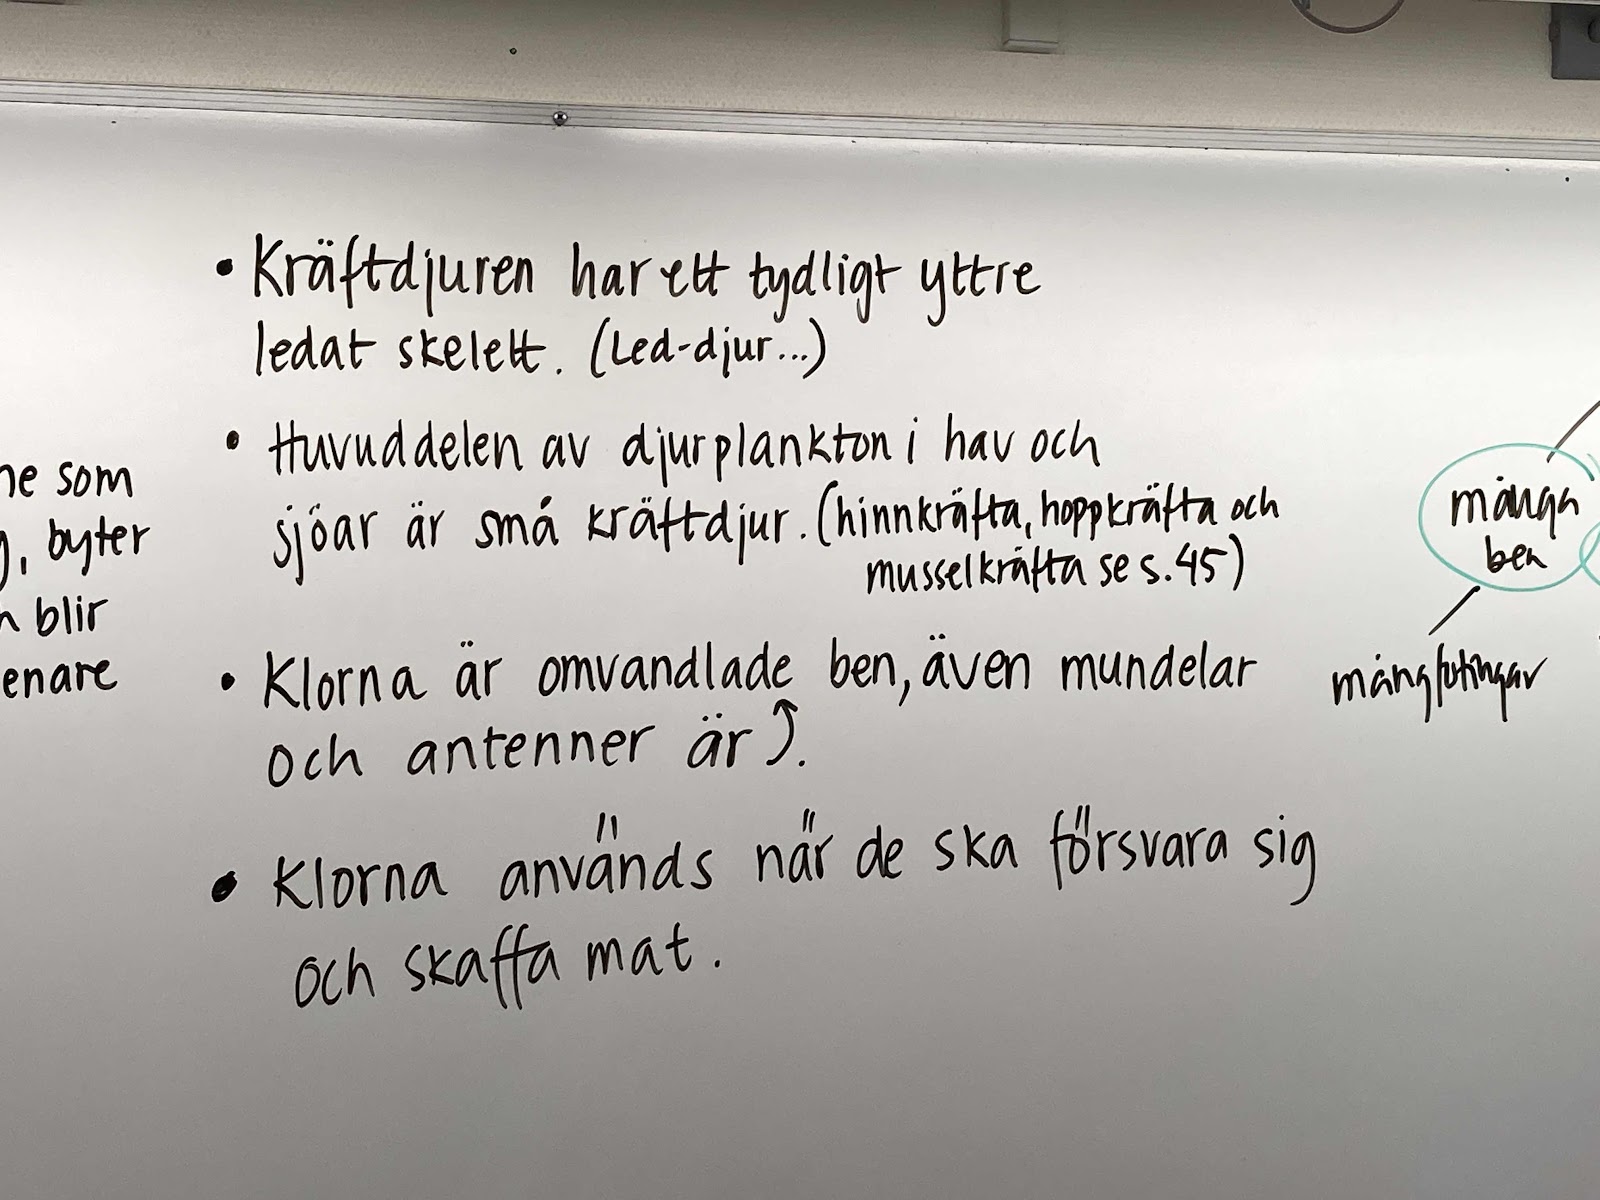 • Kräftdjuren har ett tydligt yttre
ledat skelett. (Led-djur...)
• Huvuddelen av djurplankton i hav och
sjöar är små kräftdjur. (hinnkräfta, hoppkräfta och
musselkräfta se s. 45)
• Klorna är omvandlade ben, även mundelar
och antenner är ⤴.
• Klorna används när de ska försvara sig
och skaffa mat.
som
, byter
blir
enare
många
ben
mångfotingar